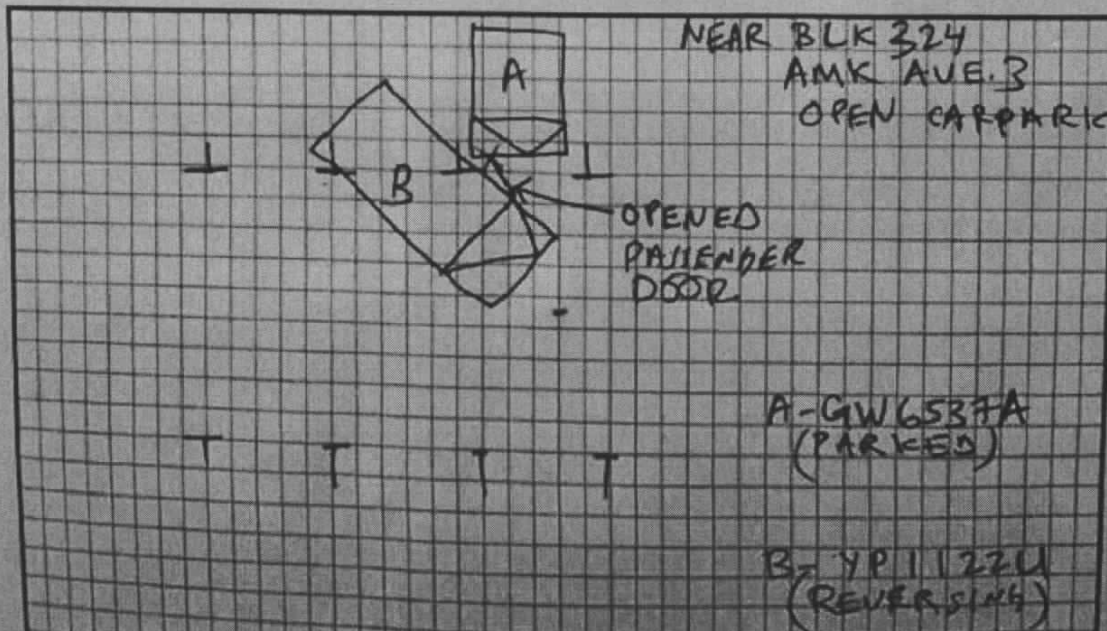 NEAR BLK 324
AMK AVE. 3
OPEN CARPARK
A
B
OPENED
PASSENDER
DOOR
A-GW6537A
(PARKED)
B- YP1122U
(REVERSING)